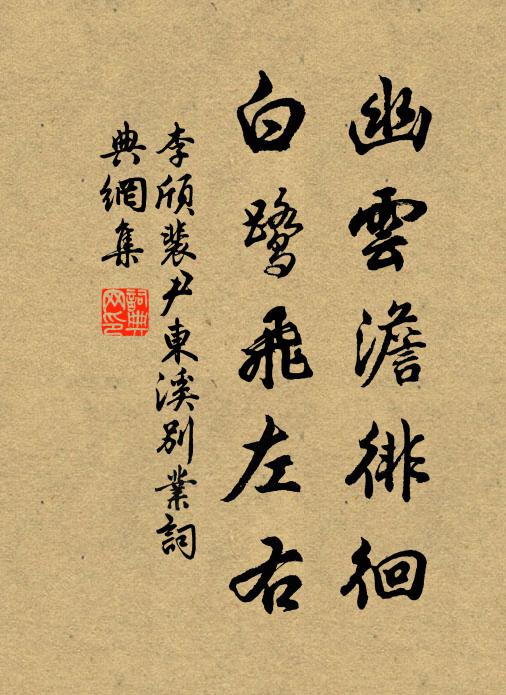 幽雲澹徘徊
白鷺飛左右
李頎裴尹東溪別業詞
典網集
詞典網印